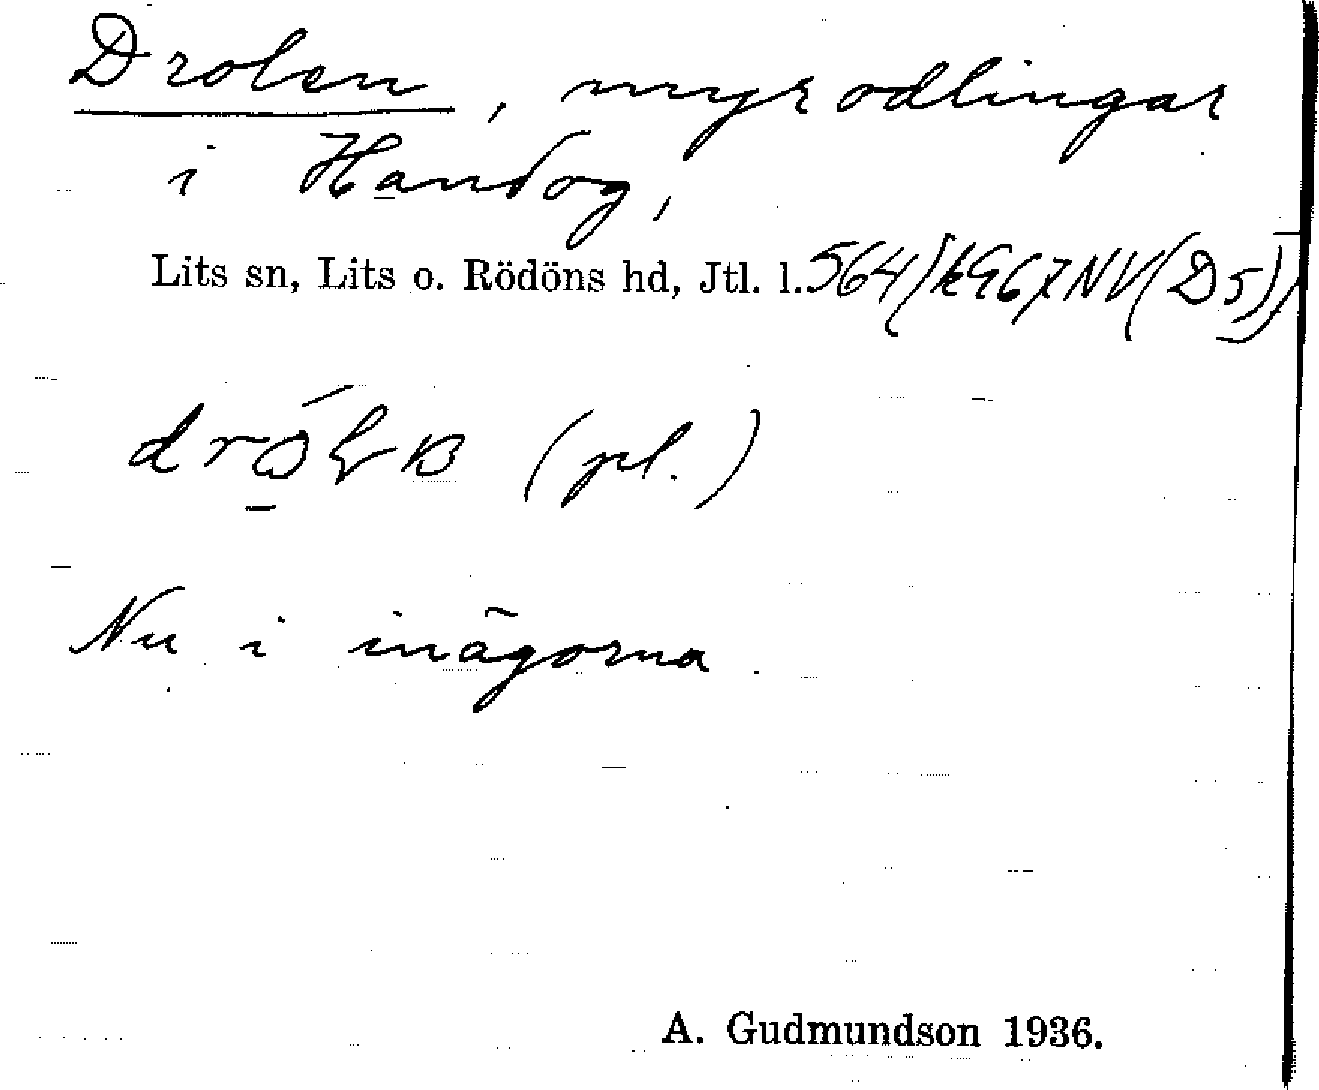 Drolen, myrodlingar
i Handog,
Lits sn, Lits o. Rödöns hd, Jtl. l. 564)
(pl.)
Nu i inägorna.
A. Gudmundson 1936.